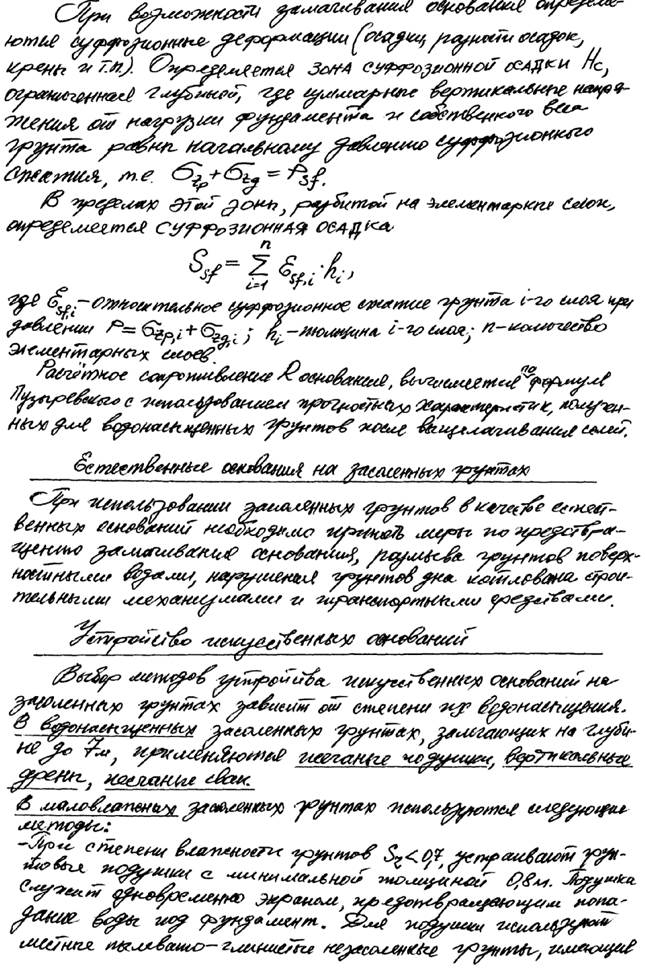 При возможности замачивания основания определя-
ются суффозионные деформации (осадки, разности осадок,
крены и т.п.). Определяется зона суффозионной осадки Hс,
ограниченная глубиной, где суммарные вертикальные напря-
жения от нагрузки фундамента и собственного веса
грунта равны начальному давлению суффозионного
сжатия, т.е. σzp + σzg = Psf.
В пределах этой зоны, разбитой на элементарные слои,
определяется суффозионная осадка
Ssf = Σ(i=1, n) εsf,i · hi,
где εsf,i – относительное суффозионное сжатие грунта i-го слоя при
давлении P = σzp,i + σzg,i; hi – толщина i-го слоя; n – количество
элементарных слоев.
Расчётное сопротивление R основания, вычисляется по формуле
Пузыревского с использованием прочностных характеристик, получен-
ных для водонасыщенных грунтов после выщелачивания солей.
Естественные основания на засоленных грунтах
При использовании засоленных грунтов в качестве естест-
венных оснований необходимо принять меры по предотвра-
щению замачивания основания, размыва грунтов поверх-
ностными водами, нарушения грунтов дна котлована строи-
тельными механизмами и транспортными средствами.
Устройство искусственных оснований
Выбор методов устройства искусственных оснований на
засоленных грунтах зависит от степени их водонасыщения.
В водонасыщенных засоленных грунтах, залегающих на глуби-
не до 7м, применяются песчаные подушки, вертикальные
дрены, песчаные сваи.
В маловлажных засоленных грунтах используются следующие
методы:
– При степени влажности грунтов Sr < 0,7, устраивают грун-
товые подушки с минимальной толщиной 0,8м. Подушка
служит одновременно экраном, предотвращающим попа-
дание воды под фундамент. Для подушки используют
местные пылевато-глинистые незасоленные грунты, имеющие